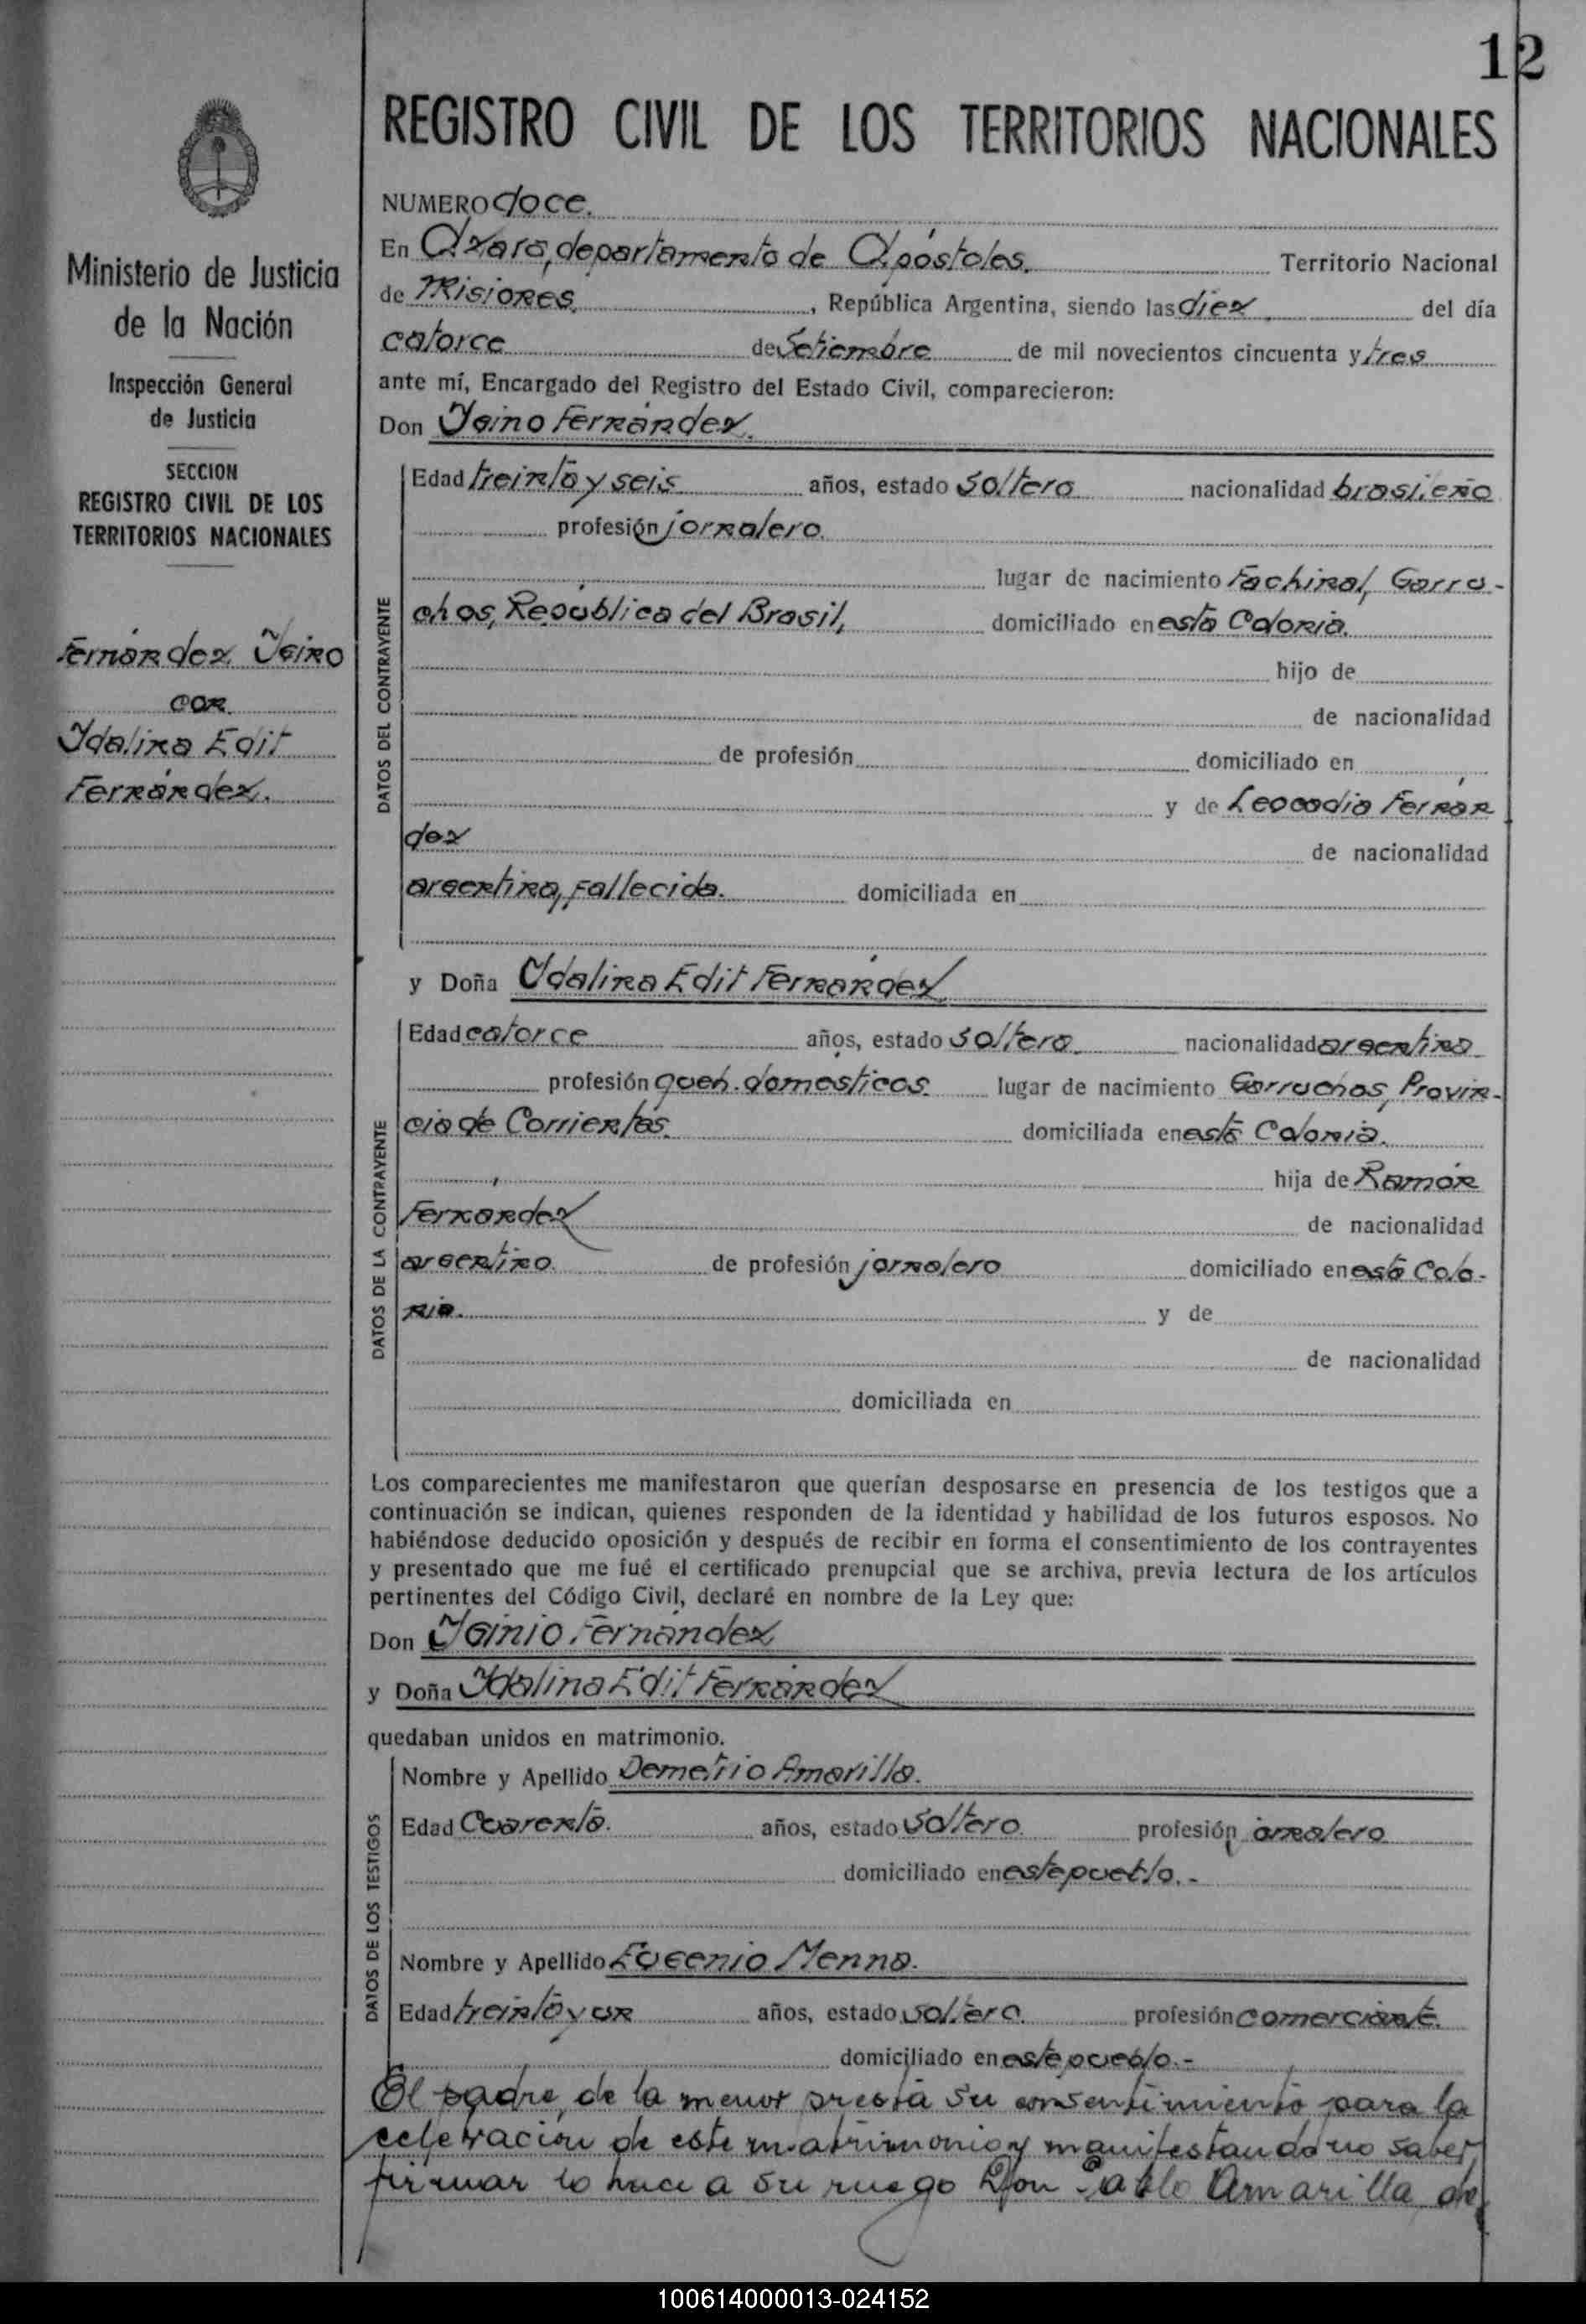 12
REGISTRO CIVIL DE LOS TERRITORIOS NACIONALES
Ministerio de Justicia
de la Nación
Inspección General
de Justicia
SECCION
REGISTRO CIVIL DE LOS
TERRITORIOS NACIONALES
Fernández Ygino
con
Ydalina Edit
Fernández.
NUMERO doce.
En Azara, departamento de Apóstoles. Territorio Nacional
de Misiones, República Argentina, siendo las diez del día
catorce de Setiembre de mil novecientos cincuenta y tres
ante mí, Encargado del Registro del Estado Civil, comparecieron:
Don Ygino Fernández.
DATOS DEL CONTRAYENTE
Edad treinta y seis años, estado soltero nacionalidad brasileño
profesión jornalero.
lugar de nacimiento Fachinal, Garru-
chos, República del Brasil, domiciliado en esta Colonia.
hijo de
de nacionalidad
de profesión domiciliado en
y de Leocadia Fernán
dez de nacionalidad
argentina, fallecida. domiciliada en
y Doña Ydalina Edit Fernández
DATOS DE LA CONTRAYENTE
Edad catorce años, estado soltera nacionalidad argentina
profesión queh. domesticos lugar de nacimiento Garruchos, Provin-
cia de Corrientes. domiciliada en esta Colonia.
hija de Ramón
Fernández de nacionalidad
argentino. de profesión jornalero domiciliado en esta Colo-
nia. y de
de nacionalidad
domiciliada en
Los comparecientes me manifestaron que querían desposarse en presencia de los testigos que a
continuación se indican, quienes responden de la identidad y habilidad de los futuros esposos. No
habiéndose deducido oposición y después de recibir en forma el consentimiento de los contrayentes
y presentado que me fué el certificado prenupcial que se archiva, previa lectura de los artículos
pertinentes del Código Civil, declaré en nombre de la Ley que:
Don Yginio Fernández
y Doña Ydalina Edit Fernández
quedaban unidos en matrimonio.
DATOS DE LOS TESTIGOS
Nombre y Apellido Demetrio Amarilla.
Edad Cuarenta. años, estado Soltero profesión jornalero
domiciliado en este pueblo.-
Nombre y Apellido Eugenio Menna.
Edad treinta y un años, estado soltero. profesión comerciante.
domiciliado en este pueblo.-
El padre, de la menor presta su consentimiento para la
celevracion de este matrimonio y manifestando no saber
firmar lo hace a su ruego Don Pablo Amarilla, de
100614000013-024152